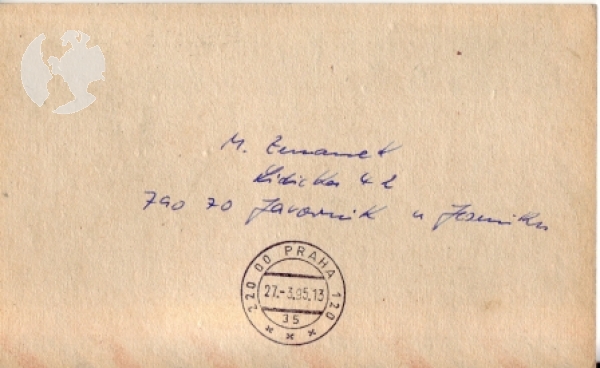 M. Zemanek
Lidická 42
790 70 Javorník u Jeseníku
220 00 PRAHA 120
27.-3.95.13
35